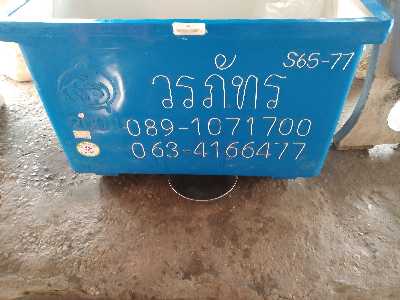 S65-77
วรภัทร
089-1071700
063-4166477